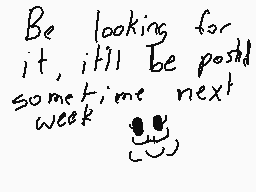 Be looking for
it, it'll be postd
sometime next
week